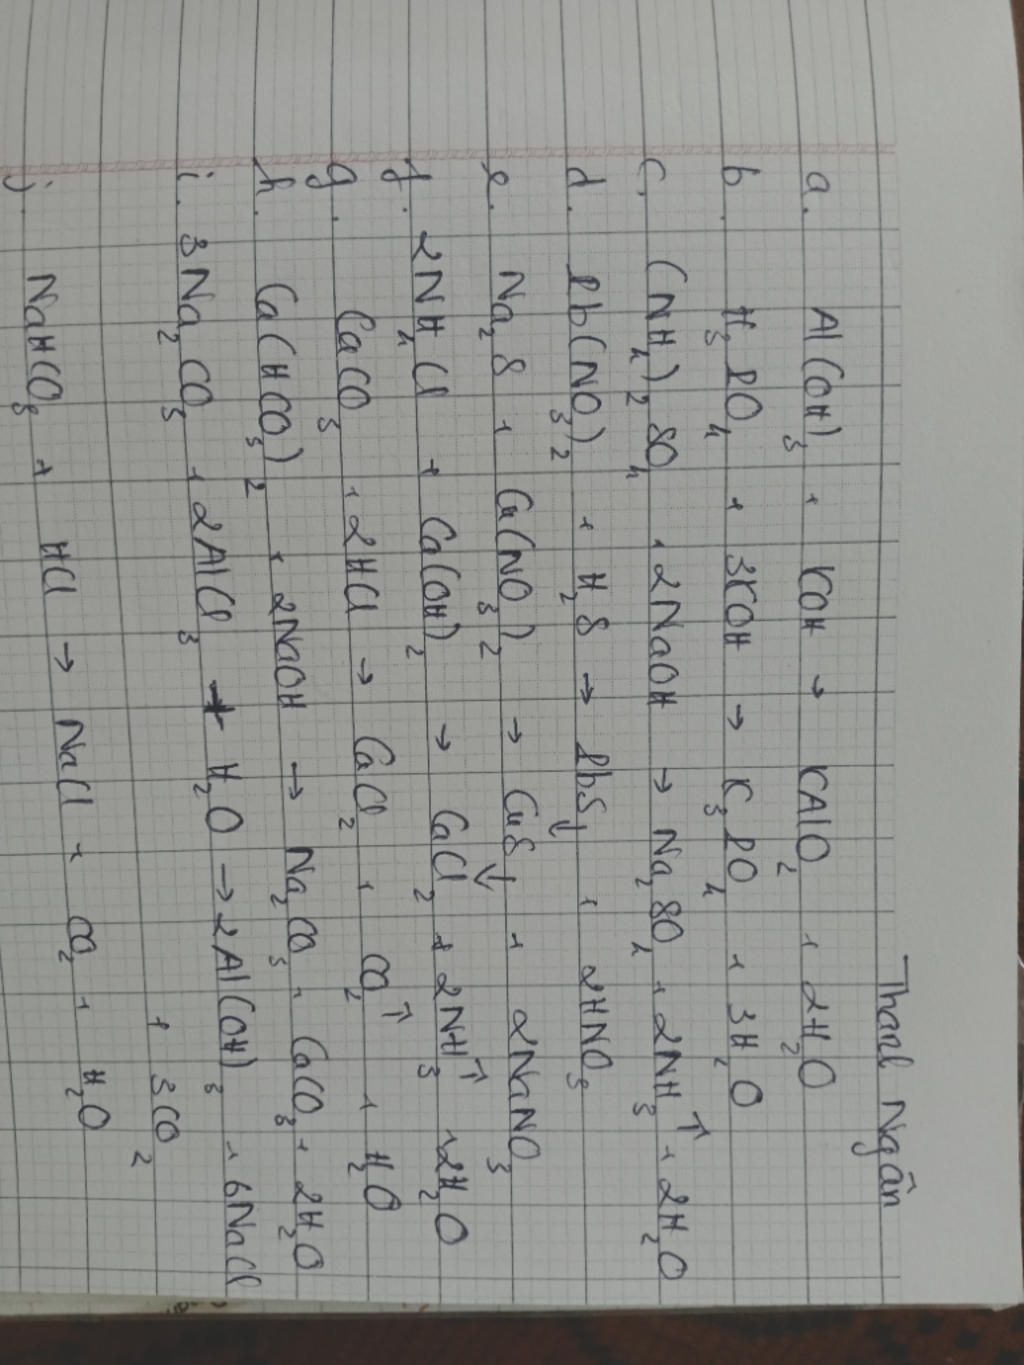 Thanh Ngân
a. Al(OH)₃ + KOH → KAlO₂ + 2H₂O
b. H₃PO₄ + 3KOH → K₃PO₄ + 3H₂O
c. (NH₄)₂SO₄ + 2NaOH → Na₂SO₂ + 2NH₃↑ + 2H₂O
d. Pb(NO₃)₂ + H₂S → PbS↓ + 2HNO₃
e. Na₂S + Cu(NO₃)₂ → CuS↓ + 2NaNO₃
f. 2NH₄Cl + Ca(OH)₂ → CaCl₂ + 2NH₃↑ + 2H₂O
g. CaCO₃ + 2HCl → CaCl₂ + CO₂↑ + H₂O
h. Ca(HCO₃)₂ + 2NaOH → Na₂CO₃ + CaCO₃ + 2H₂O
i. 3Na₂CO₃ + 2AlCl₃ + H₂O → 2Al(OH)₃ + 6NaCl
+ 3CO₂
j. NaHCO₃ + HCl → NaCl + CO₂ + H₂O